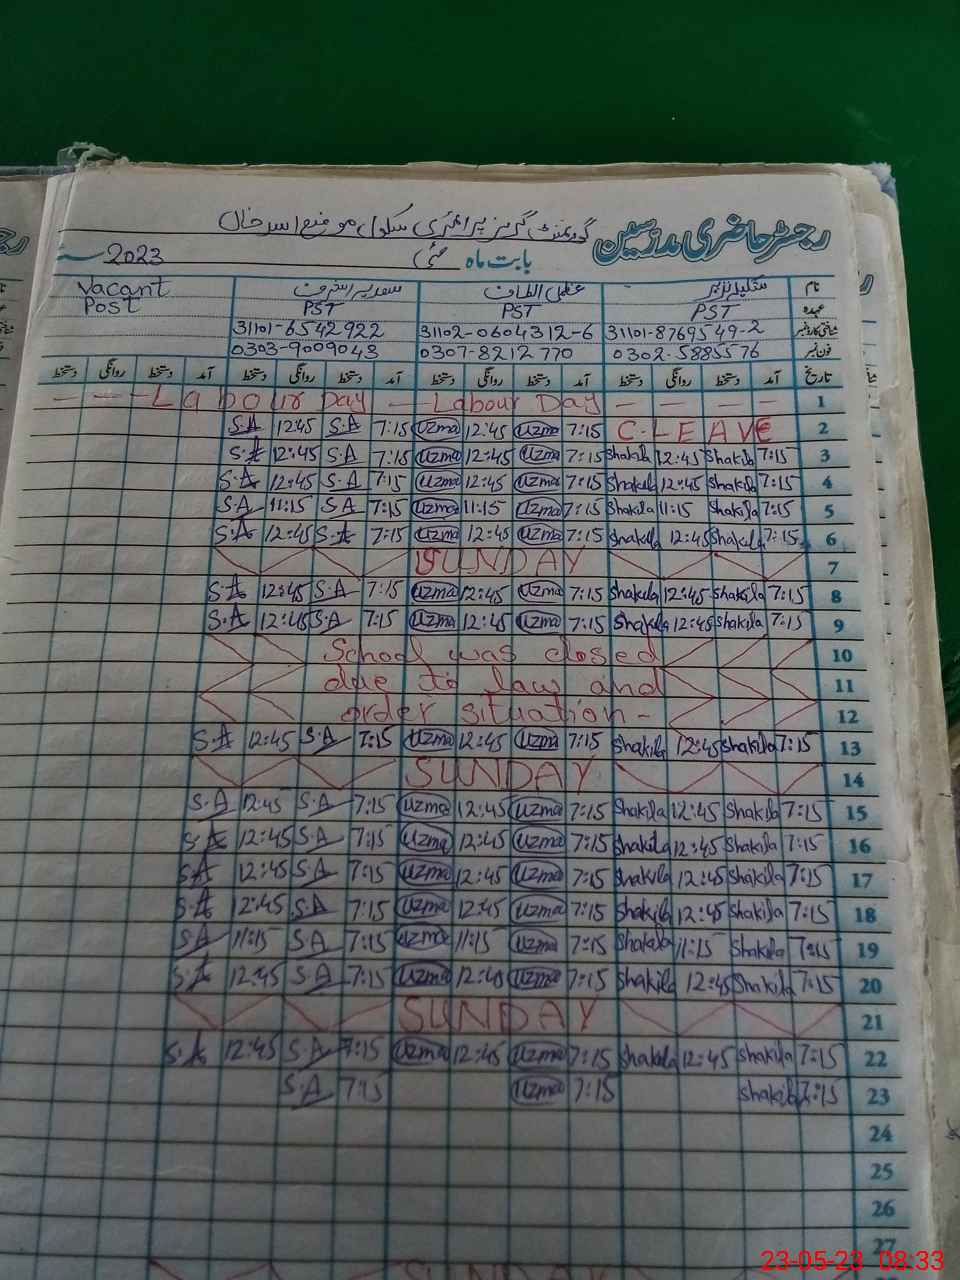 رجسٹر حاضری مدرسین گورنمنٹ گرلز پرائمری سکول موضع اسر خاں
بابت ماہ مئی 2023
نام عظمیٰ الطاف Vacant
عہدہ PST PST PST Post
شناختی کارڈ نمبر 31101-8769549-2 31102-0604312-6 31101-6542922
فون نمبر 0302-5885576 0307-8212770 0303-9009043
تاریخ آمد دستخط روانگی دستخط آمد دستخط روانگی دستخط آمد دستخط روانگی دستخط آمد دستخط روانگی دستخط
1 - - - Labour Day - Labour Day - - - -
2 S.A 12:45 S.A 7:15 Uzma 12:45 Uzma 7:15 C-LEAVE
3 S.A 12:45 S.A 7:15 Uzma 12:45 Uzma 7:15 Shakila 12:45 Shakila 7:15
4 S.A 12:45 S.A 7:15 Uzma 12:45 Uzma 7:15 Shakila 12:45 Shakila 7:15
5 S.A 11:15 S.A 7:15 Uzma 11:15 Uzma 7:15 Shakila 11:15 Shakila 7:15
6 S.A 12:45 S.A 7:15 Uzma 12:45 Uzma 7:15 Shakila 12:45 Shakila 7:15
7 SUNDAY
8 S.A 12:45 S.A 7:15 Uzma 12:45 Uzma 7:15 Shakila 12:45 Shakila 7:15
9 S.A 12:45 S.A 7:15 Uzma 12:45 Uzma 7:15 Shakila 12:45 Shakila 7:15
10 School was closed
11 due to law and
12 order situation -
13 S.A 12:45 S.A 7:15 Uzma 12:45 Uzma 7:15 Shakila 12:45 Shakila 7:15
14 SUNDAY
15 S.A 12:45 S.A 7:15 Uzma 12:45 Uzma 7:15 Shakila 12:45 Shakila 7:15
16 S.A 12:45 S.A 7:15 Uzma 12:45 Uzma 7:15 Shakila 12:45 Shakila 7:15
17 S.A 12:45 S.A 7:15 Uzma 12:45 Uzma 7:15 Shakila 12:45 Shakila 7:15
18 S.A 12:45 S.A 7:15 Uzma 12:45 Uzma 7:15 Shakila 12:45 Shakila 7:15
19 S.A 11:15 S.A 7:15 Uzma 11:15 Uzma 7:15 Shakila 11:15 Shakila 7:15
20 S.A 12:45 S.A 7:15 Uzma 12:45 Uzma 7:15 Shakila 12:45 Shakila 7:15
21 SUNDAY
22 S.A 12:45 S.A 7:15 Uzma 12:45 Uzma 7:15 Shakila 12:45 Shakila 7:15
23 S.A 7:15 Uzma 7:15 Shakila 7:15
24
25
26
27
SUNDAY
23-05-23 08:33